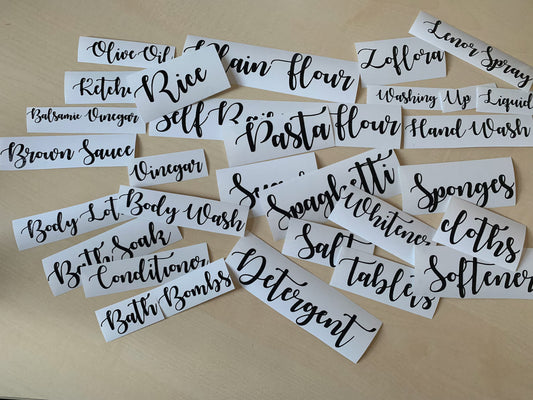 Olive Oil
Plain flour
Zoflora
Lenor Spray
Rice
Washing Up Liquid
Balsamic Vinegar
Self
Pasta
flour
Hand Wash
Brown Sauce
Vinegar
Spaghetti
Sponges
Body
Body Wash
Whitener
cloths
Soak
Salt
Conditioner
tablets
Softener
Detergent
Bath Bombs